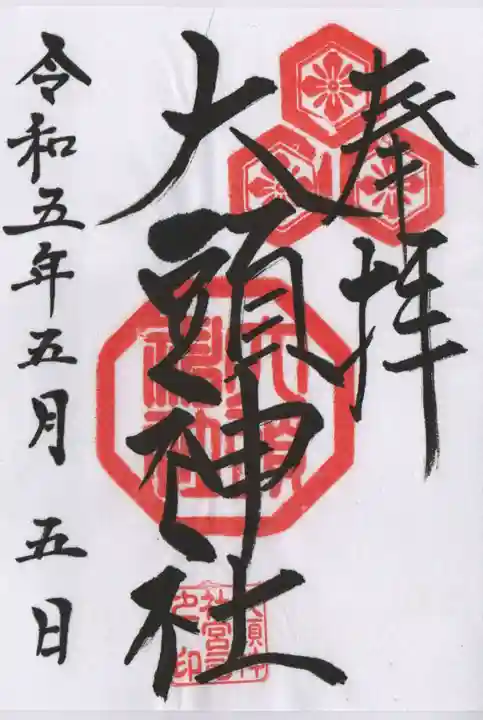 奉拝
大頭神社
大頭神社
大頭神
社宮司
之印
令和五年五月五日